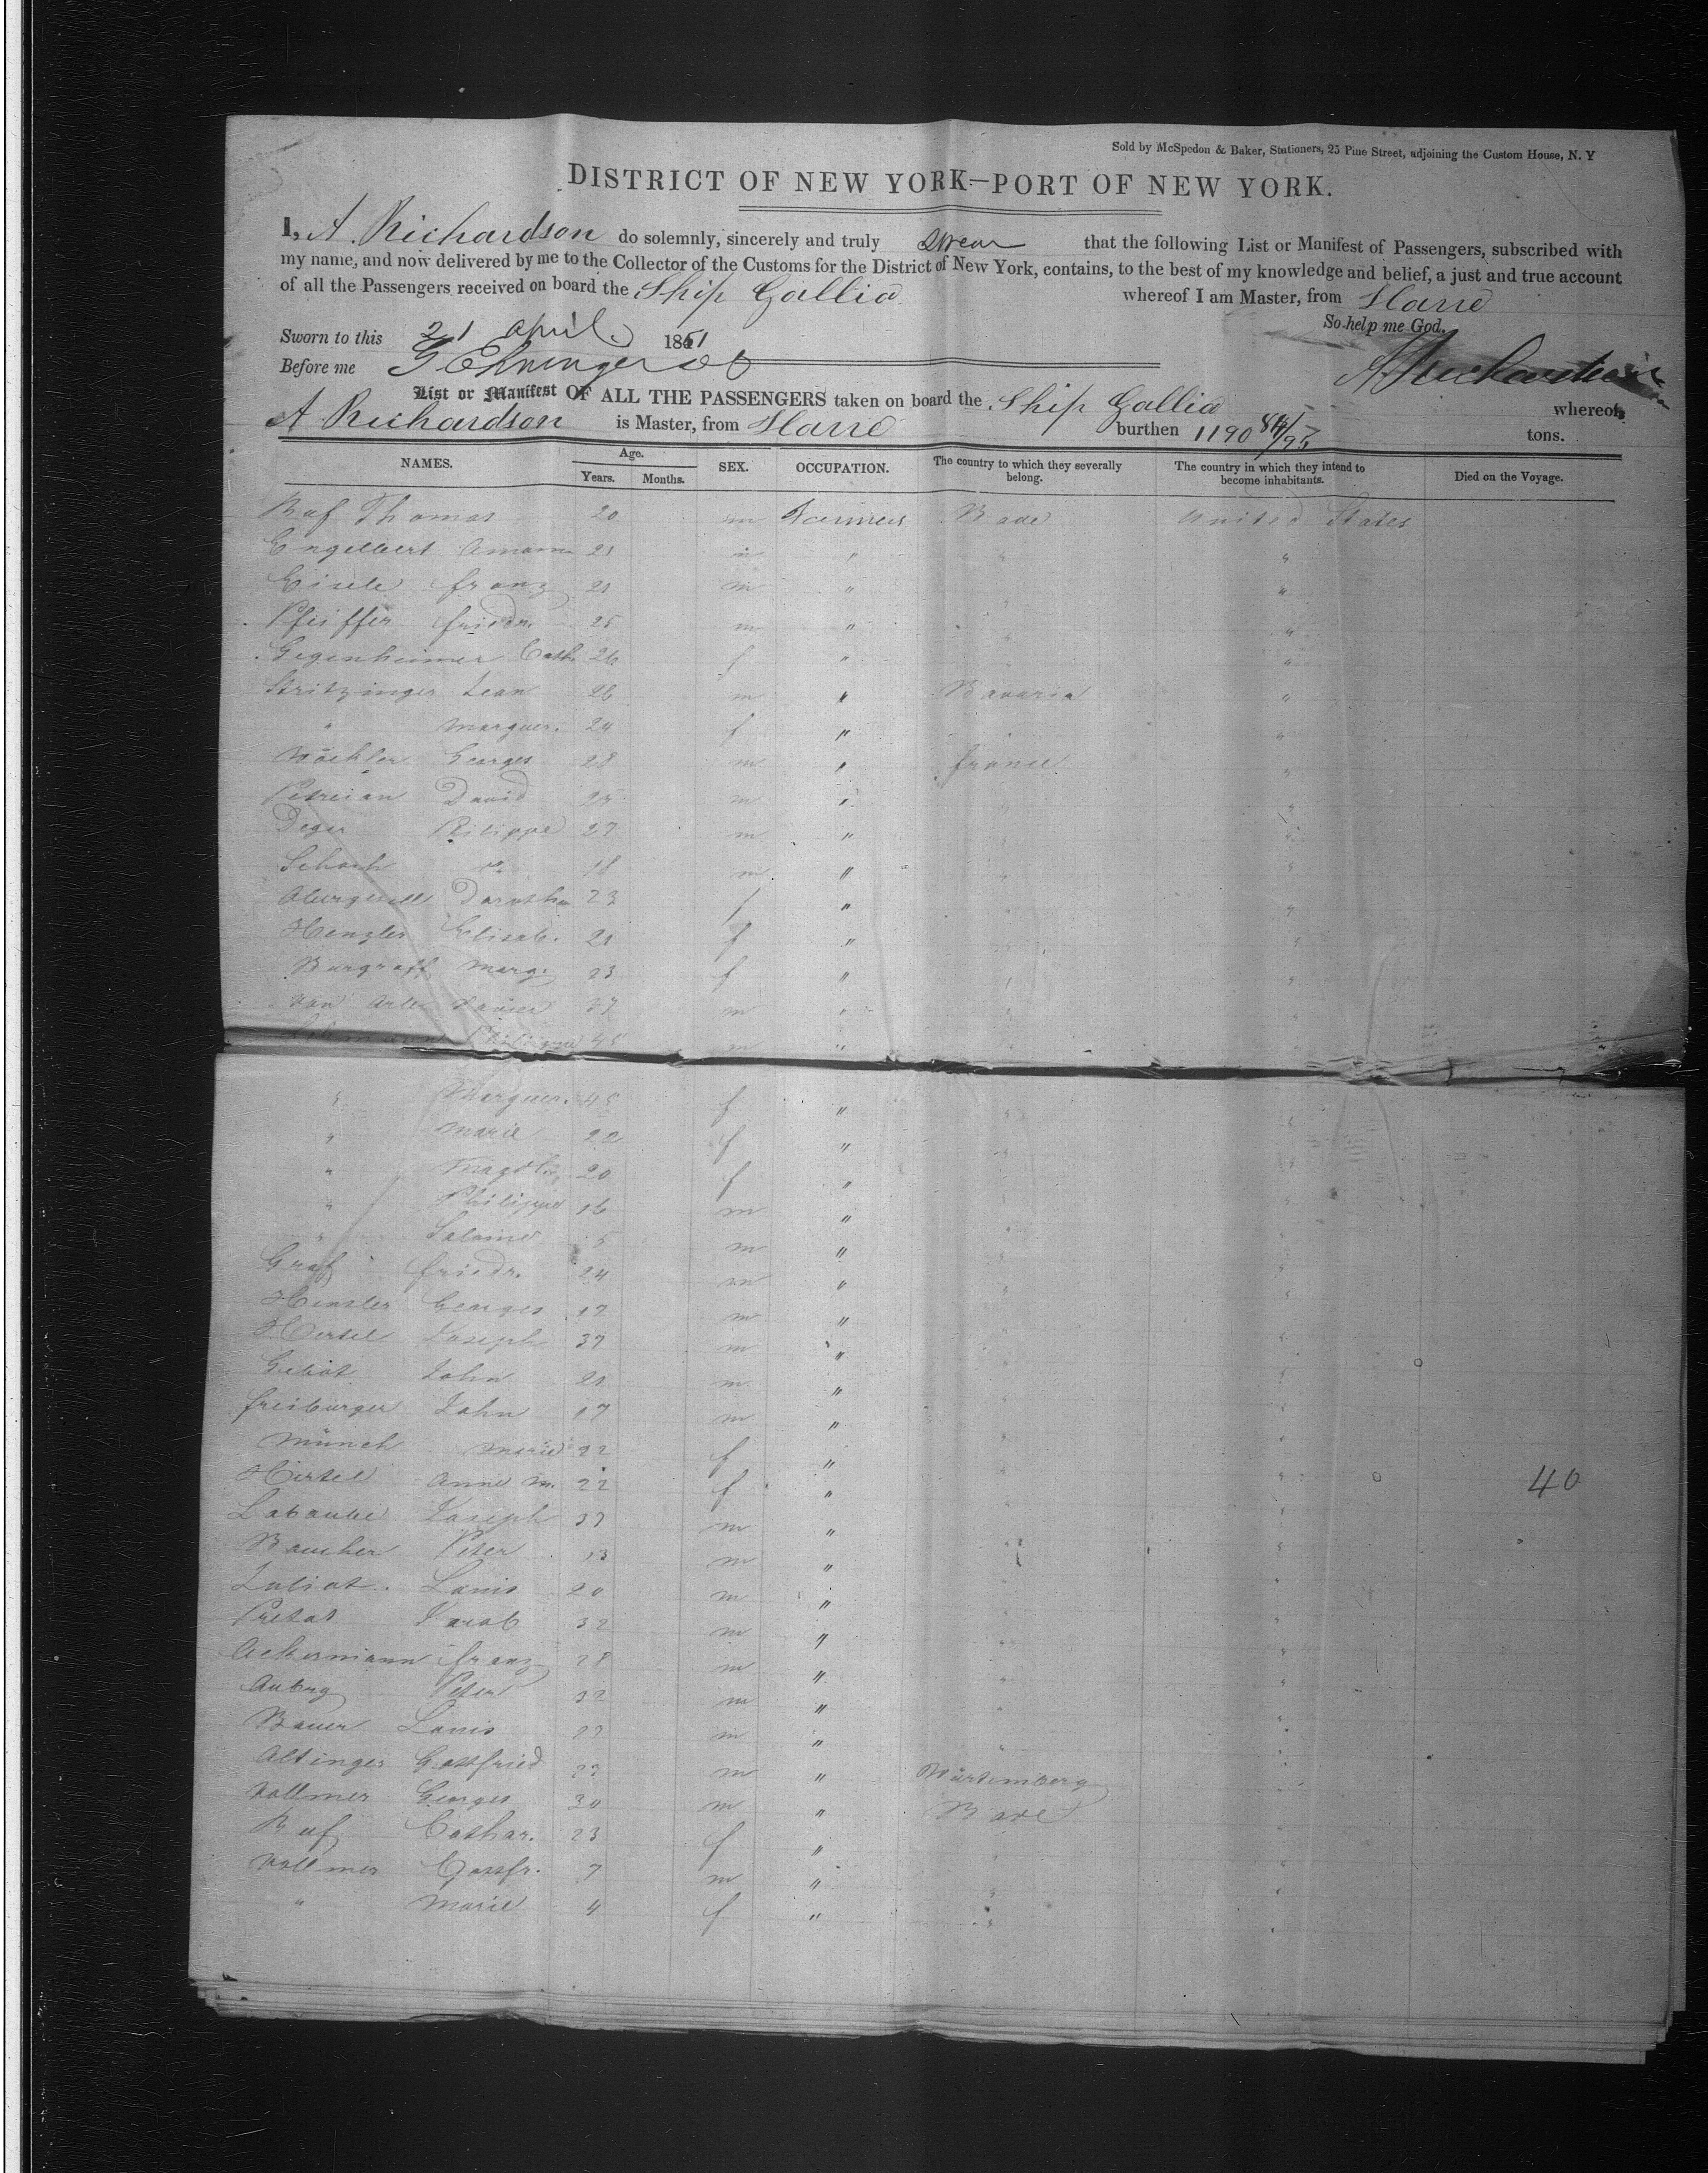 Sold by McSpedon & Baker, Stationers, 25 Pine Street, adjoining the Custom House, N. Y
DISTRICT OF NEW YORK—PORT OF NEW YORK.
I, A. Richardson do solemnly, sincerely and truly swear that the following List or Manifest of Passengers, subscribed with
my name, and now delivered by me to the Collector of the Customs for the District of New York, contains, to the best of my knowledge and belief, a just and true account
of all the Passengers received on board the Ship Gallia whereof I am Master, from Havre
So help me God.
Sworn to this 21 April 1851
Before me
A Richardson
List or Manifest OF ALL THE PASSENGERS taken on board the Ship Gallia whereof
A Richardson is Master, from Havre burthen 1190 84/95 tons.
NAMES. Age. Years. Months. SEX. OCCUPATION. The country to which they severally belong. The country in which they intend to become inhabitants. Died on the Voyage.
Ruf Thomas 20 m Farmers Bade United States
Engelbert Amann 21 m " " "
Eisele franz 21 m " " "
Pfeiffer friedr. 25 m " " "
Gegenheimer Cath. 26 f " " "
Stritzinger Jean 26 m " Bavaria "
" Marguer. 24 f " " "
Georges 28 m " france "
David 25 m " "
Deger Philippe 27 m " " "
18 m " " "
23 f " " "
Henzler Elisab. 21 f " " "
Burgraff Marg. 23 f " " "
Van Xavier 37 m " " "
Philippe 45 m " "
" Marguer. 45 f " " "
" Marie 22 f " " "
" Magdl. 20 f " "
" Philippe 16 m " "
" Salome 5 m " " "
Graf friedr. 24 m " " "
Henzler Georges 17 m " " "
Hertel Joseph 37 m " " "
John 21 m " " "
freiburger John 17 m " " "
Münch Marie 22 f " " "
Hertel Anne M. 22 f " " " 40
Joseph 37 m " " "
Peter 13 m " " "
Juliot Louis 20 m " " "
Pretot Jacob 32 m " "
Ackermann franz 28 m " " "
Aubry Peter 32 m " " "
Bauer Louis m " " "
Altinger Gottfried m " Würtemberg "
Vollmer Georges 30 m " Bade "
Ruf Cathar. 23 f " " "
Vollmer Gottfr. 7 m " " "
" Marie 4 f " " "